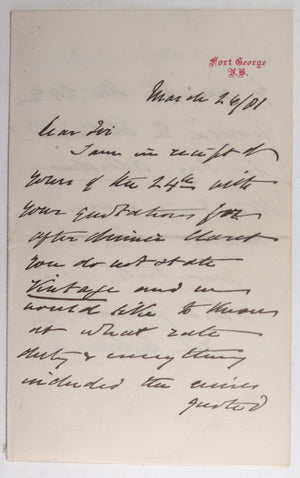 Fort George
N.B.
March 26/81
Dear Sir
I am in receipt of
yours of the 24th with
your quotations for
after dinner Claret
you do not state
Vintage and we
would like to know
at what rate
duty & everything
included the wines
quoted